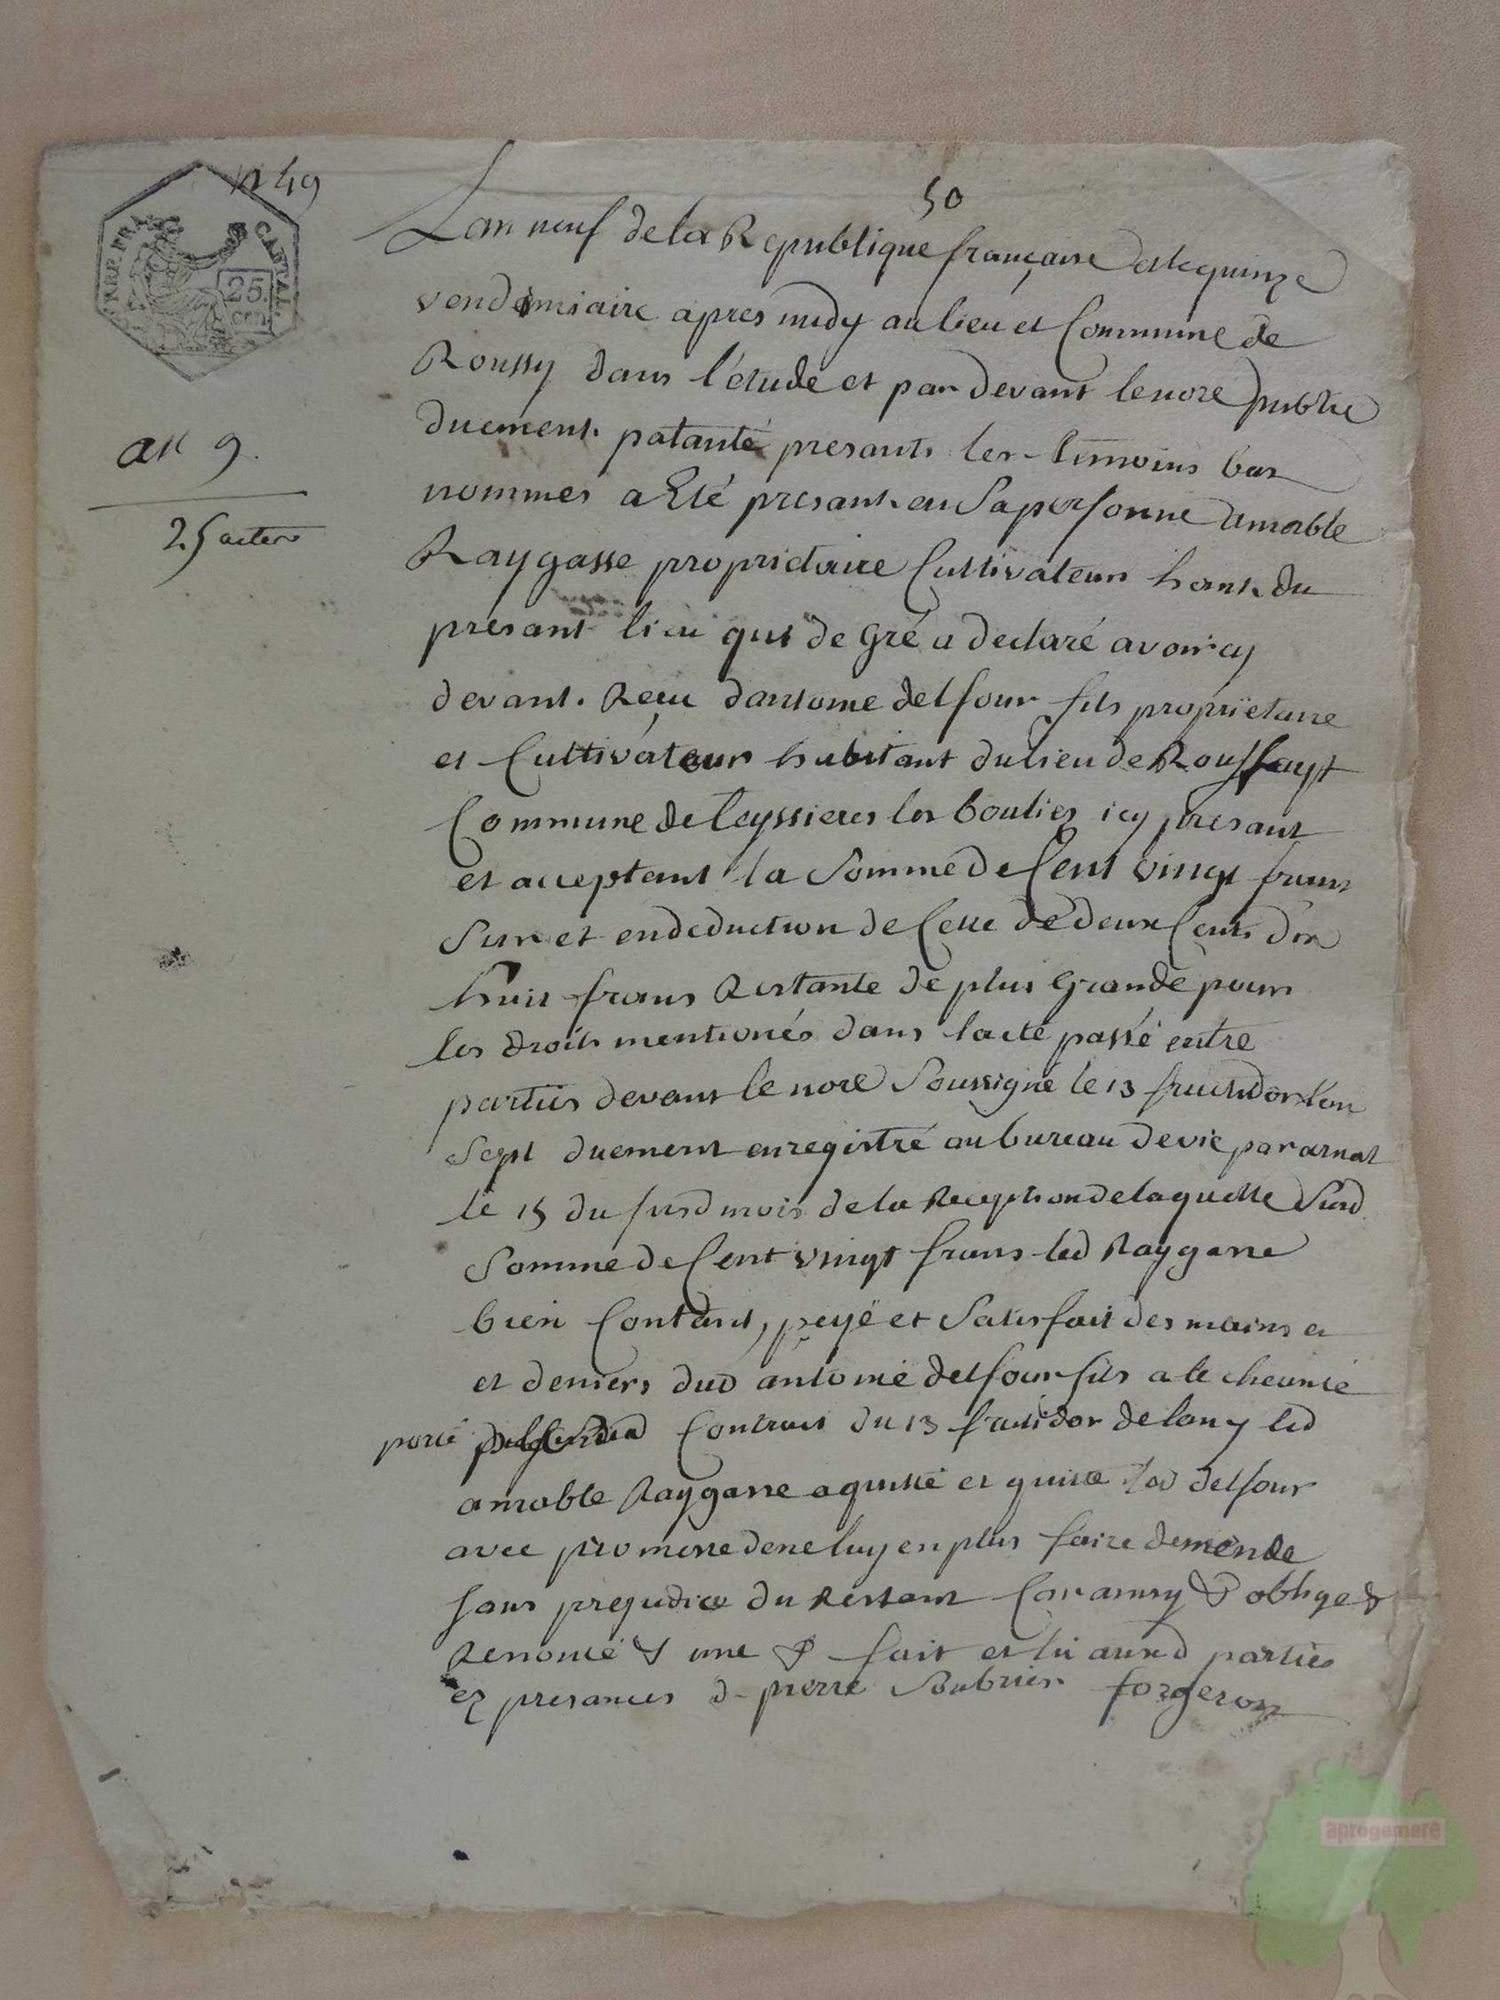 n 49
50
REP. FRA
CANTAL.
25.
cen
an 9.
25 actes
Lan neuf dela Republique française et le quinze
vendemiaire apres midy au lieu et Commune de
Roussy dans l'étude et par devant le nore public
duement patanté presants les temoins bas
nommes a Eté presant en sa personne amable
Raygasse proprietaire Cultivateur hant du
presant lieu qui de gré a declaré avoir cy
devant Reçu dantoine delfour fils proprietaire
et Cultivateur habitant du lieu de
Commune de teyssieres les boulies icy presant
et acceptant la somme de Cent vingt frans
sur et en deduction de Celle de deux Cents dix
huit frans Restante de plus grande pour
les droits mentionés dans lacte passé entre
parties devant le nore soussigné le 13 fructidor lan
sept duement enregistré au bureau de vic par arnal
le 15 du susd mois de la Reception de laquelle susd
somme de Cent vingt frans led Raygasse
bien Contant, peyé et satisfait des mains et
et deniers dud antoine delfour fils a le cheance
porté Contrait du 13 fructidor de lan 7 led
amable Raygasse a quitté et quitte led delfour
avec promesse de ne luy en plus faire demende
sans prejudice du Restant Car ainsy & oblige &
Renoncé & une & fait et lu auxd parties
ez presances de pierre Soubrier forgeron
aprogemere